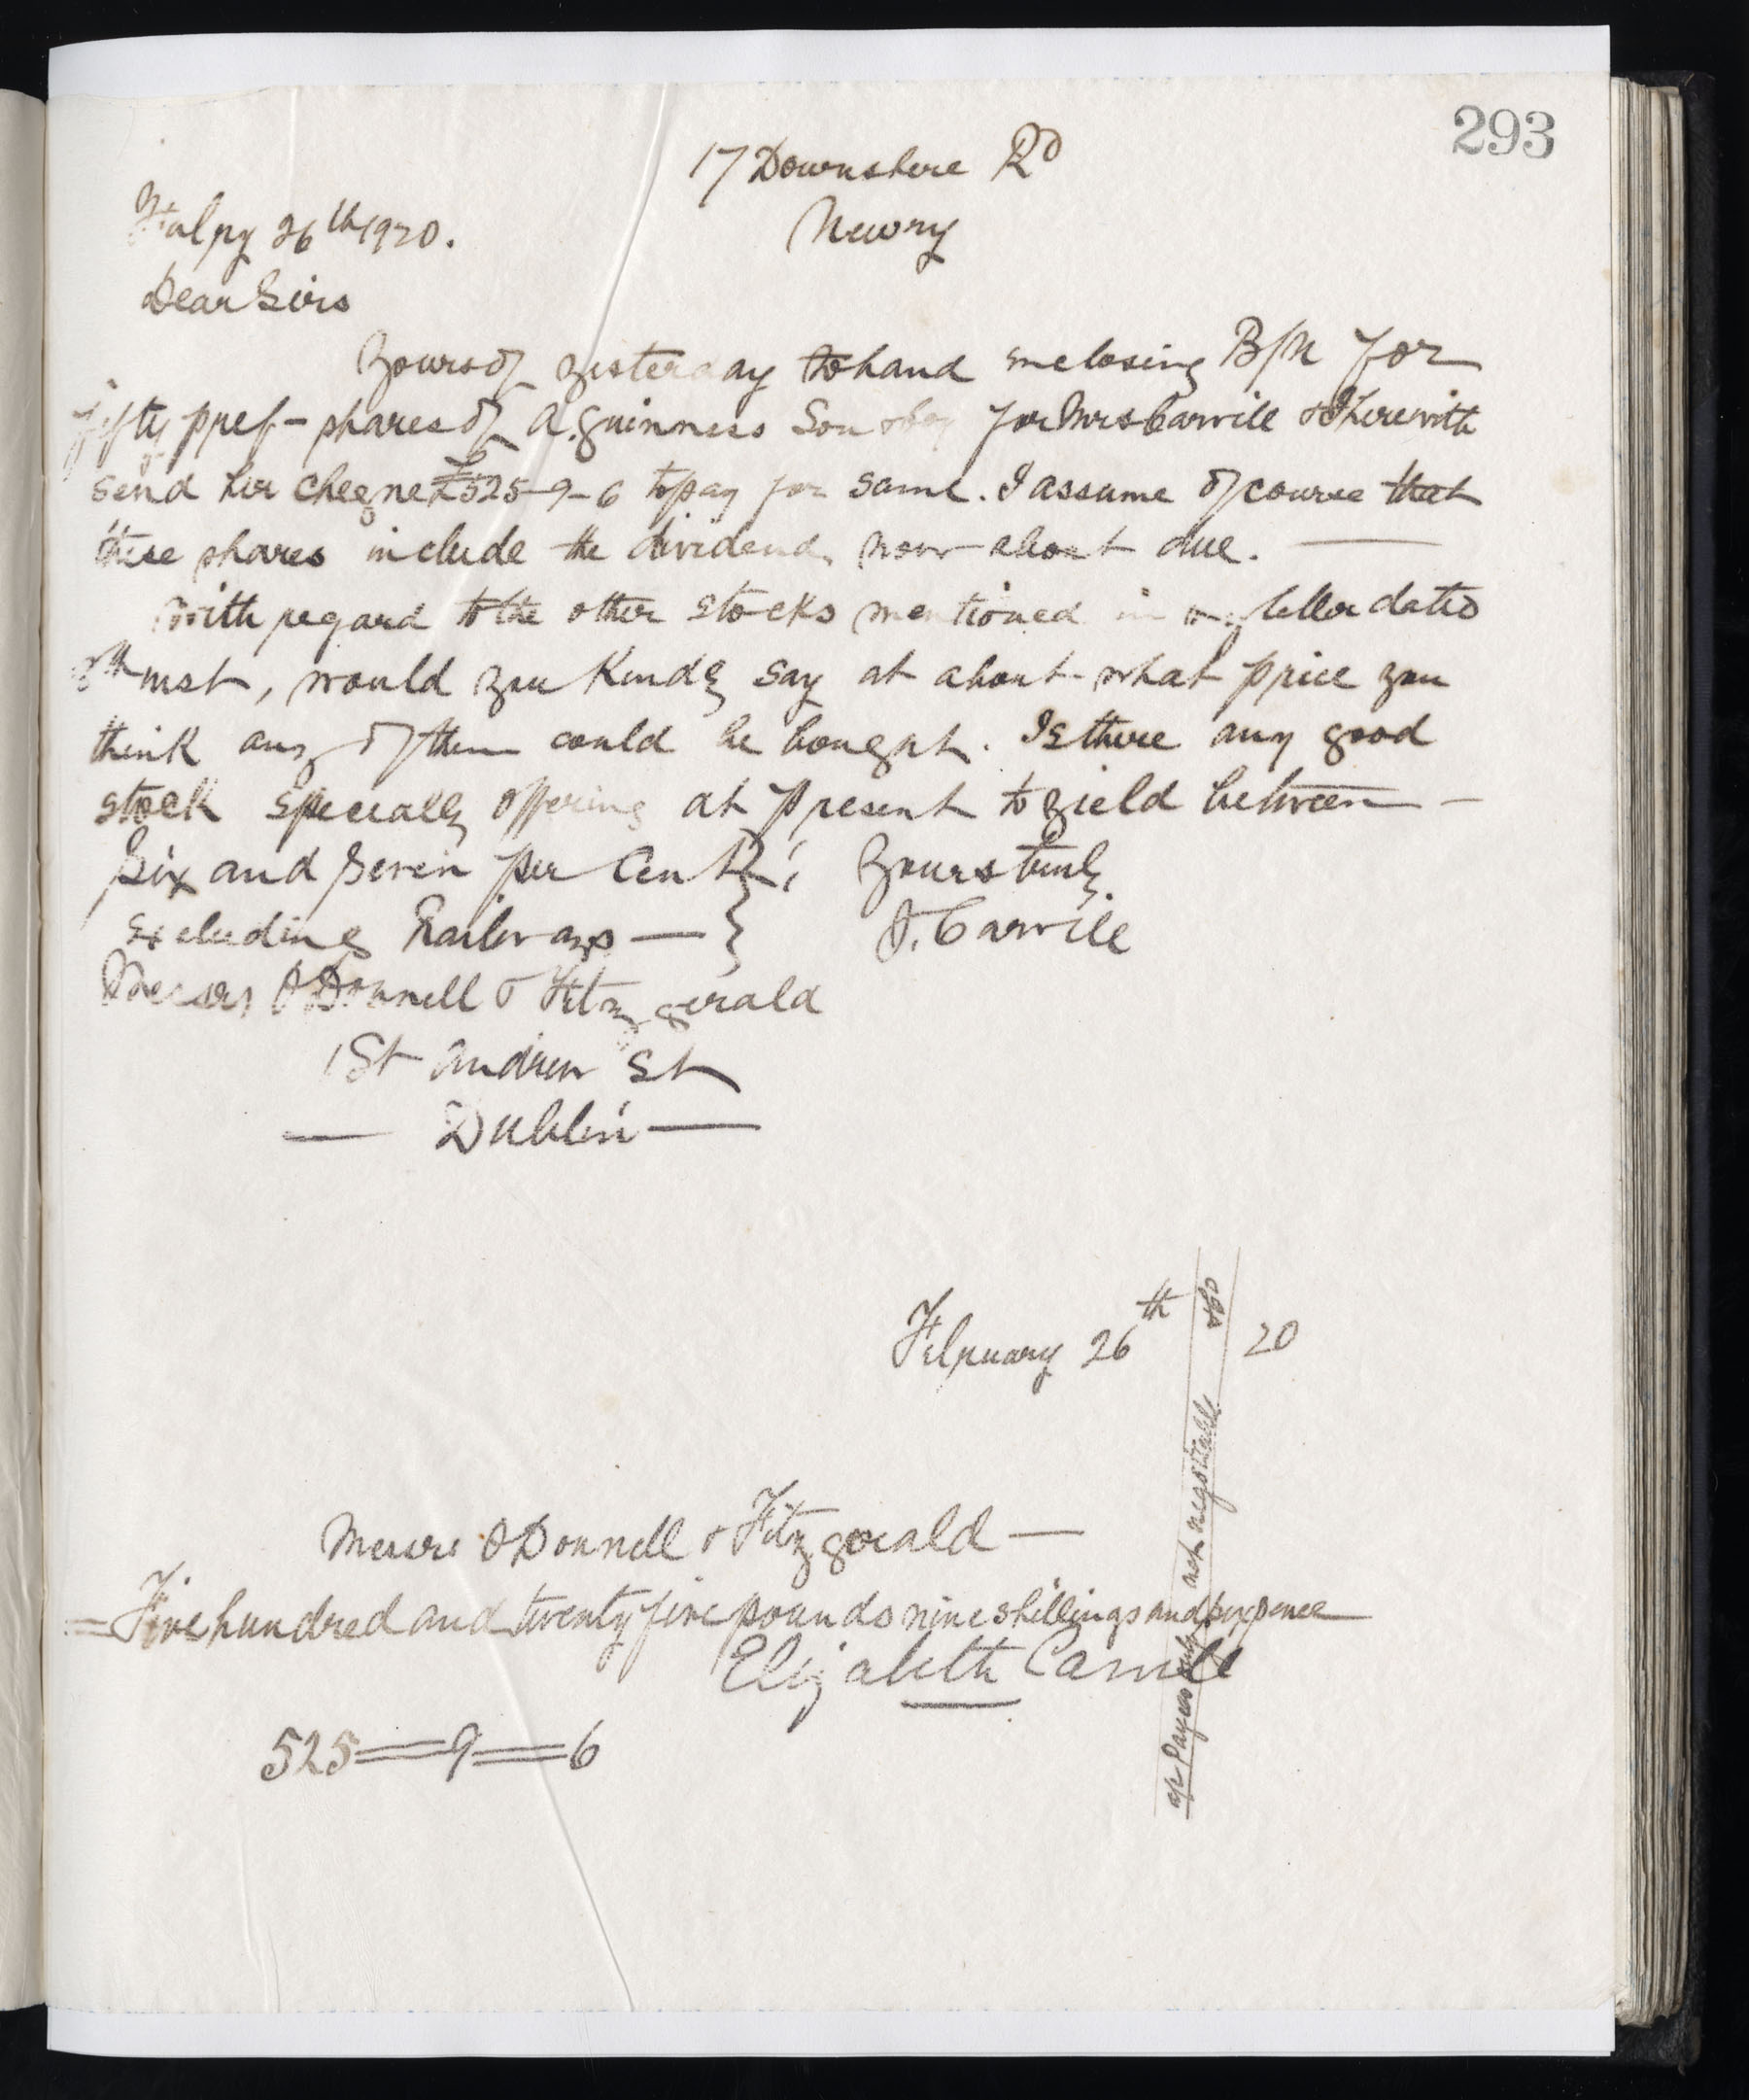 293
17 Downshire Rd
Newry
Febry 26th 1920.
Dear Sirs
Yours of yesterday to hand enclosing B/N for
fifty pref- shares of A. Guinness Son & Co for Mrs Carvile & I herewith
send her cheque £525-9-6 to pay for same. I assume of course that
these shares include the dividend now about due.
With regard to the other stocks mentioned in my letter dated
inst, would you kindly say at about what price you
think any of them could be bought. Is there any good
stock specially offering at present to yield between
six and seven per cent
excluding Railways —
Yours truly
J. Carvile
Messrs O'Donnell & Fitzgerald
1 St Andrew St
— Dublin —
February 26th 20
Messrs O'Donnell & Fitzgerald —
= Five hundred and twenty five pounds nine shillings and sixpence
Elizabeth Carvile
525=9=6
a/c Payees only not negotiable &Co